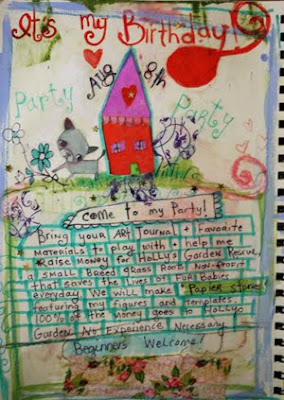 It's my Birthday!
Aug 8th
Party
Party
Come to my Party!
Bring your Art Journal + Favorite
materials to play with + help me
raise money for Holly's Garden Rescue,
a small Breed grass Roots Non-profit
that saves the Lives of Fur Babies
everyday. We will make "Papier Stories"
featuring my figures and templates.
100% of the money goes to Hollys
Garden. No Experience Necessary
Beginners Welcome!